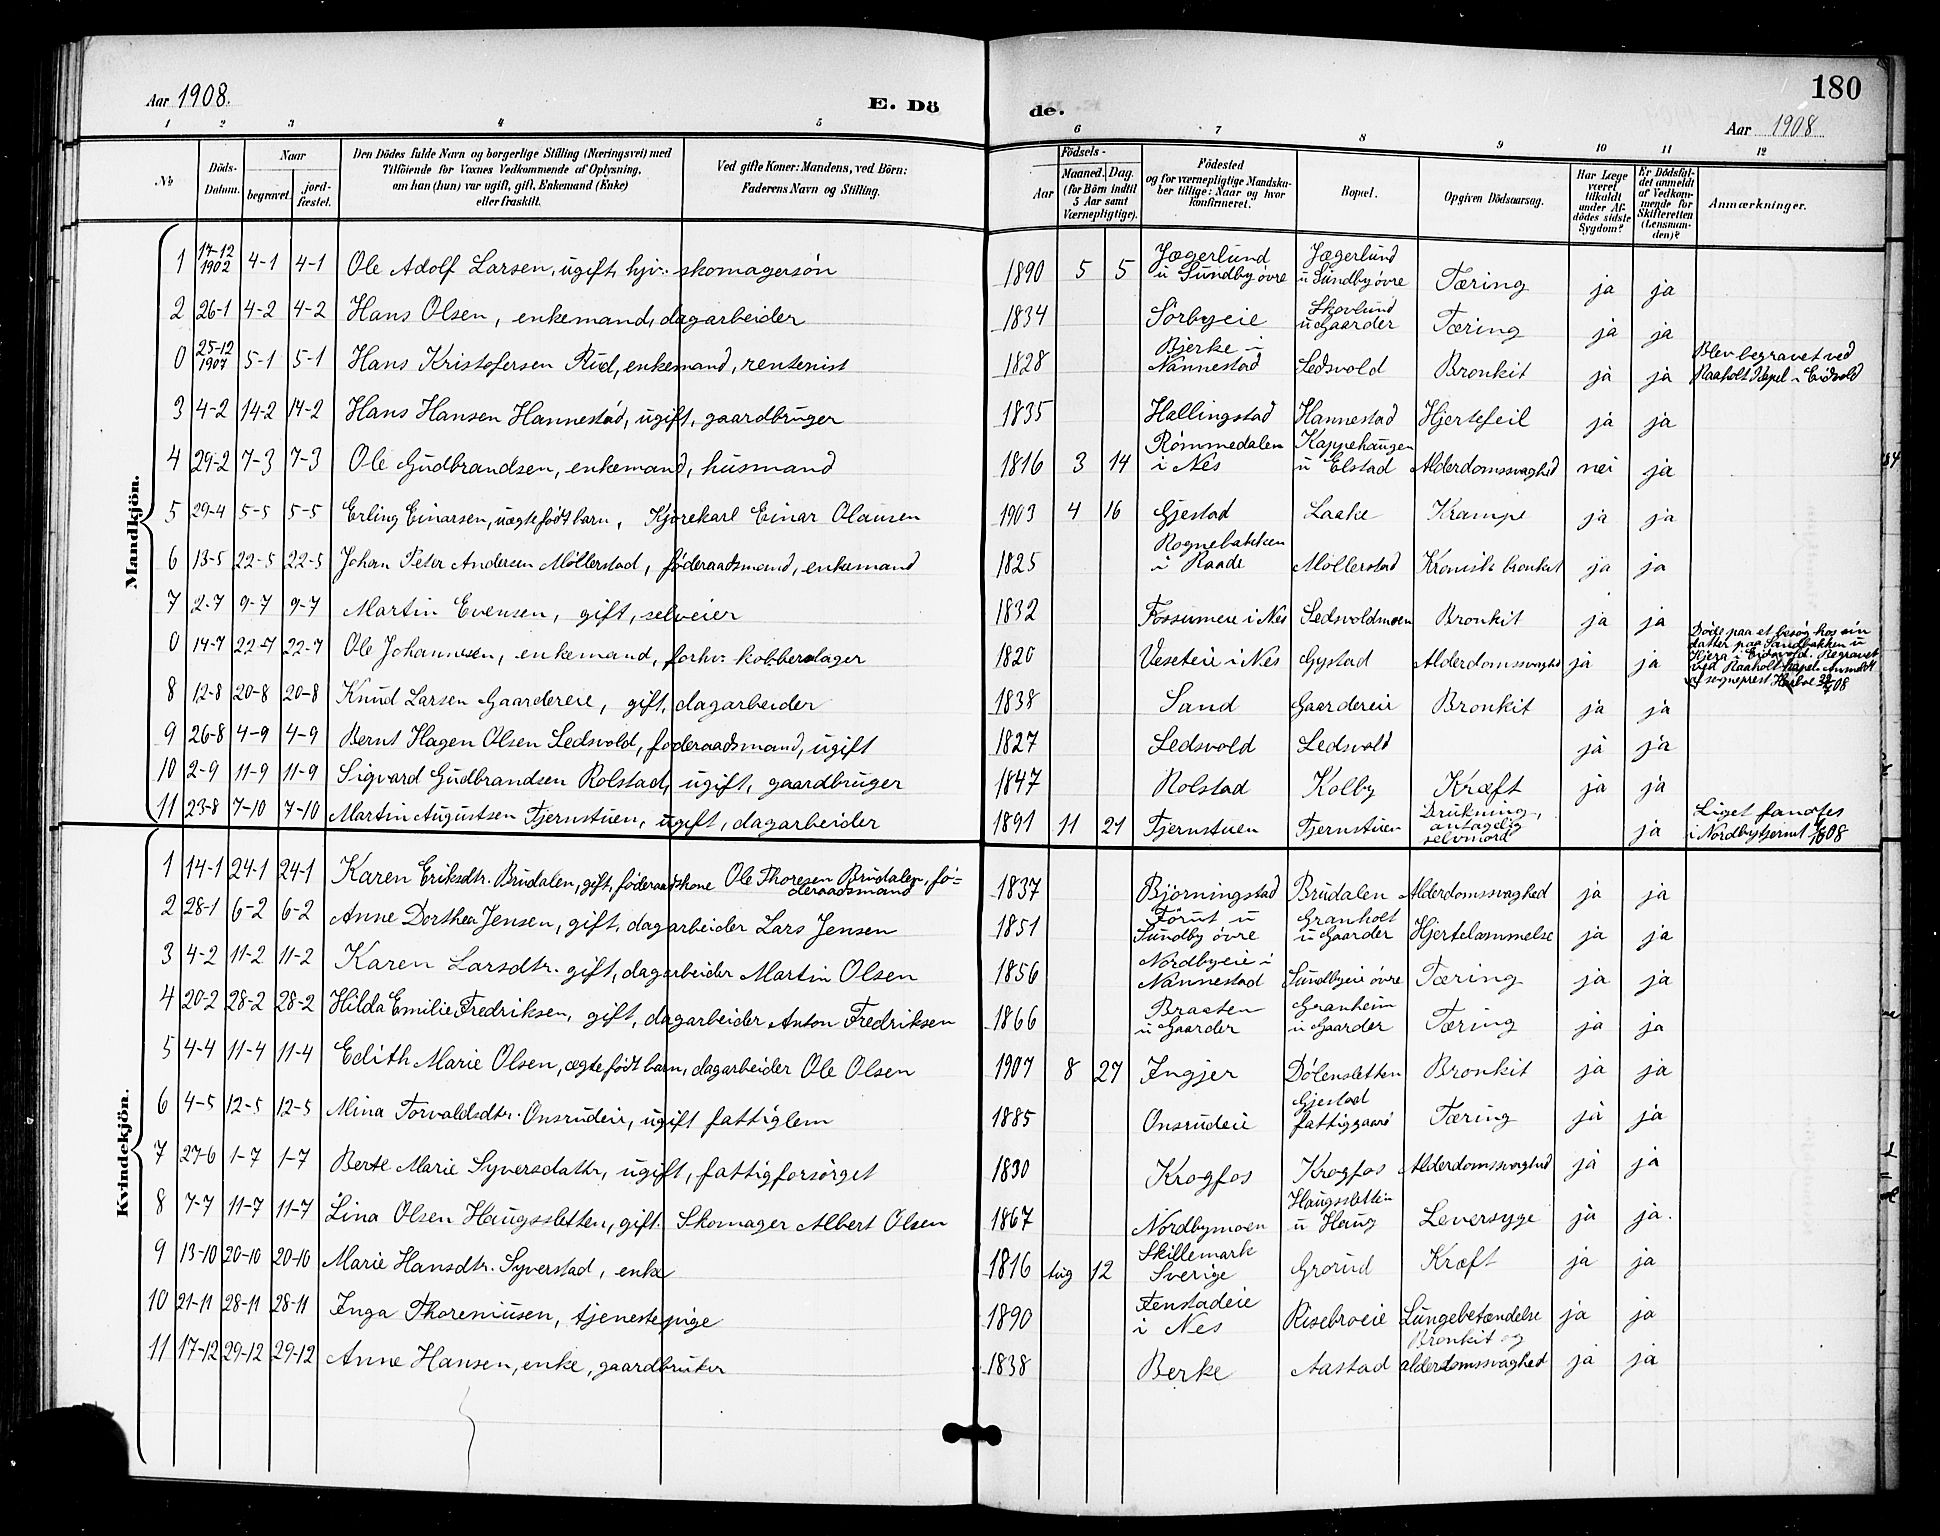 Aar 1908. E. Dö de. 180
Aar 1908
1 2 3 4 5 6 7 8 9 10 11 12
No
Döds-Datum.
Naar begravet. jord-fæstet.
Den Dödes fulde Navn og borgerlige Stilling (Næringsvei) med
Tilföiende for Voxnes Vedkommende af Oplysning,
om han (hun) var ugift, gift, Enkemand (Enke)
eller fraskilt.
Ved gifte Koner: Mandens, ved Börn:
Faderens Navn og Stilling.
Födsels-
Aar Maaned. Dag.
(for Börn indtil
5 Aar samt
Værnepligtige).
Födested
og for værnepligtige Mandska-
ber tillige: Naar og hvor
konfirmeret.
Bopæl.
Opgiven Dödsaarsag.
Har Læge
været
tilkaldt
under Af-
dödes sidste
Sygdom?
Er Dödsfal-
det anmeldt
af Vedkom-
mende for
Skifteretten
(Lensman-
den)?
Anmærkninger.
Mandkjön.
1 17-12 1902 4-1 4-1 Ole Adolf Larsen, ugift, hjv. skomagersøn 1890 5 5 Jægerlund u Sundby øvre Jægerlund u Sundby øvre Tæring ja ja
2 26-1 4-2 4-2 Hans Olsen, enkemand, dagarbeider 1834 Sørbyeie Skovlund u Gaarder Tæring ja ja
0 25-12 1907 5-1 5-1 Hans Kristofersen Rud, enkemand, rentenist 1828 Bjerke i Nannestad Ledsvold Bronkit ja ja Blev begravet ved Raaholt kapel i Eidsvold
3 4-2 14-2 14-2 Hans Hansen Hannestad, ugift, gaardbruger 1835 Hallingstad Hannestad Hjertefeil ja ja
4 29-2 7-3 7-3 Ole Gudbrandsen, enkemand, husmand 1816 3 14 Rømmedalen i Nes Kappehaugen u Elstad Alderdomssvaghed nei ja
5 29-4 5-5 5-5 Erling Einarsen, uægte født barn, Kjørekarl Einar Olausen 1903 4 16 Gjestad Laake Krampe ja ja
6 13-5 22-5 22-5 Johan Peter Andersen Møllerstad, føderaadsmand, enkemand 1825 Rognebakken i Raade Møllerstad Kronisk bronkit ja ja
7 2-7 9-7 9-7 Martin Evensen, gift, selveier 1832 Fossumeie i Nes Ledsvoldmoen Bronkit ja ja
0 14-7 22-7 22-7 Ole Johannesen, enkemand, forhv. kobberslager 1820 Veseteie i Nes Gystad Alderdomssvaghed ja ja Døde paa et besøg hos sin datter paa Sandbakken u Hjera i Eidsvold. Begravet ved Raaholt kapel. Anmeldt af sogneprest
8 12-8 20-8 20-8 Knud Larsen Gaardereie, gift, dagarbeider 1838 Sand Gaardereie Bronkit ja ja
9 26-8 4-9 4-9 Bernt Hagen Olsen Ledsvold, føderaadsmand, ugift 1827 Ledsvold Ledsvold ja ja
10 2-9 11-9 11-9 Sigvard Gudbrandsen Rolstad, ugift, gaardbruger 1847 Rolstad Kolby Kræft ja ja
11 23-8 7-10 7-10 Martin Augustsen Tjernstuen, ugift, dagarbeider 1891 11 21 Tjernstuen Tjernstuen Drukning, antagelig selvmord ja Liget fandtes i Nordbytjernet
Kvindekjön.
1 14-1 24-1 24-1 Karen Eriksdtr. Brudalen, gift, føderaadskone Ole Thoresen Brudalen, fø-deraadsmand 1837 Bjørningstad Brudalen Alderdomssvaghed ja ja
2 28-1 6-2 6-2 Anne Dorthea Jensen, gift, dagarbeider Lars Jensen 1851 Førut u Sundby øvre Granholt u Gaarder Hjertelammelse ja ja
3 4-2 11-2 11-2 Karen Larsdtr. gift, dagarbeider Martin Olsen 1856 Nordbyeie i Nannestad Sundbyeie øvre Tæring ja ja
4 20-2 28-2 28-2 Hilda Emilie Fredriksen, gift, dagarbeider Anton Fredriksen 1866 Braaten u Gaarder Granheim u Gaarder Tæring ja ja
5 4-4 11-4 11-4 Edith Marie Olsen, ægte født barn, dagarbeider Ole Olsen 1907 8 27 Ingjer Dølensletten Bronkit ja ja
6 4-5 12-5 12-5 Mina Torvaldsdtr. Onsrudeie, ugift fattiglem 1885 Onsrudeie Gjestad fattiggaard Tæring ja ja
7 27-6 1-7 1-7 Berte Marie Syversdatter, ugift, fattigforsørget 1830 Krogfos Krogfos Alderdomssvaghed ja ja
8 7-7 11-7 11-7 Lina Olsen Haugssletten, gift. Skomager Albert Olsen 1867 Nordbymoen Haugssletten u Haug Leversyge ja ja.
9 13-10 20-10 20-10 Marie Hansdtr. Syverstad, enke 1816 Aug 12 Skillemark Sverige Grorud Kræft ja ja
10 21-11 28-11 28-11 Inga Thoreniusen, tjenestepige 1890 Fenstadeie i Nes Risebroeie Lungebetændelse ja ja
11 17-12 29-12 29-12 Anne Hansen, enke, gaardbruker 1838 Berke Aastad Bronkit og alderdomssvaghed ja ja